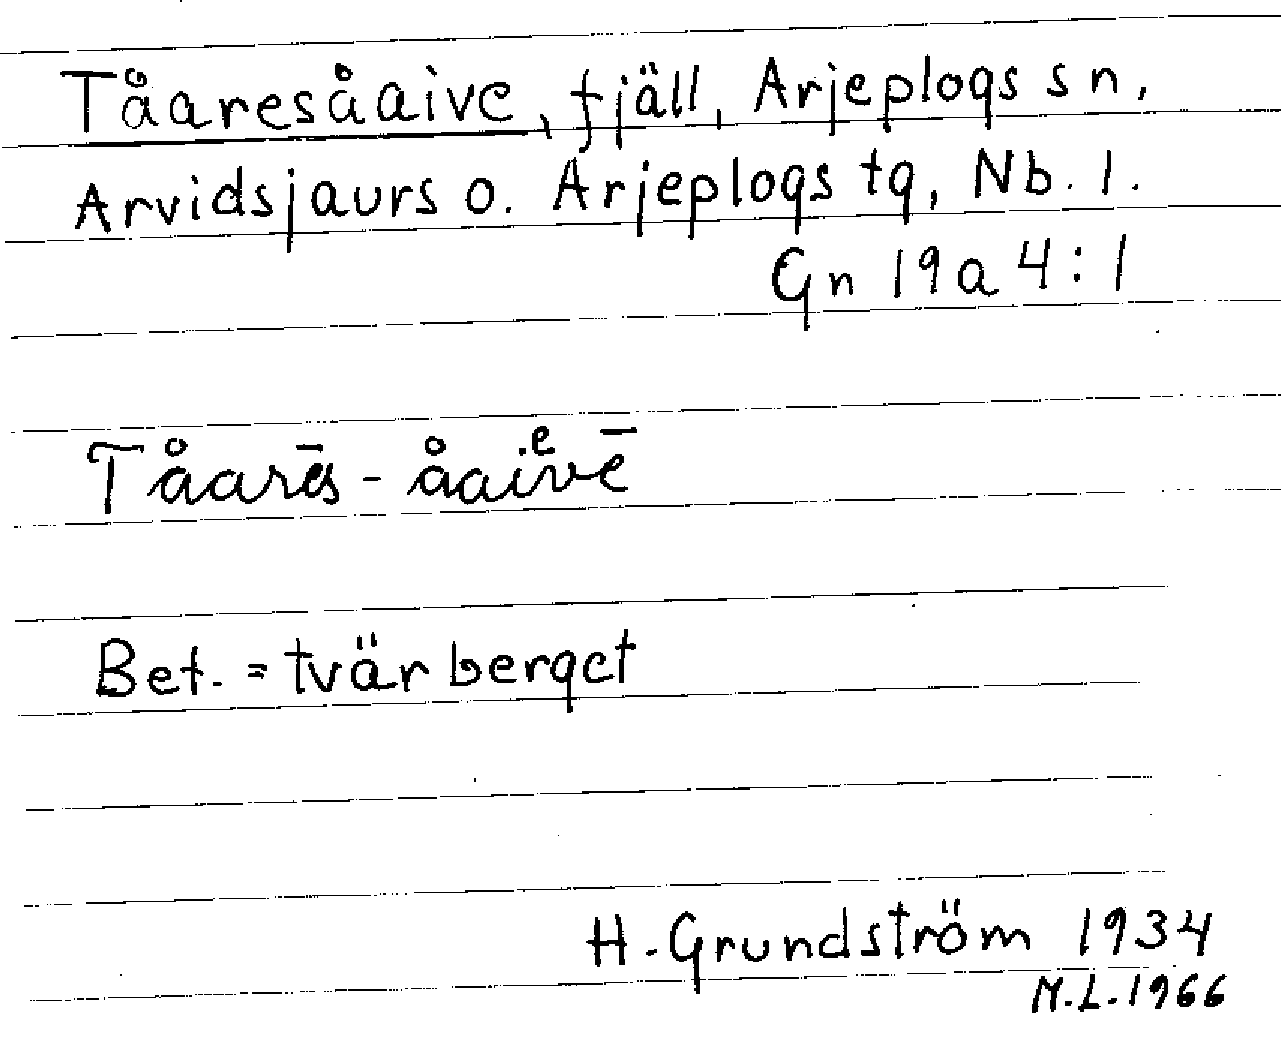 Tåaresåaive, fjäll, Arjeplogs sn,
Arvidsjaurs o. Arjeplogs tg, Nb. l.
Gn 19a 4:1
Tåarēs - åaiᵉvē
Bet. = tvärberget
H. Grundström 1934
M.L. 1966